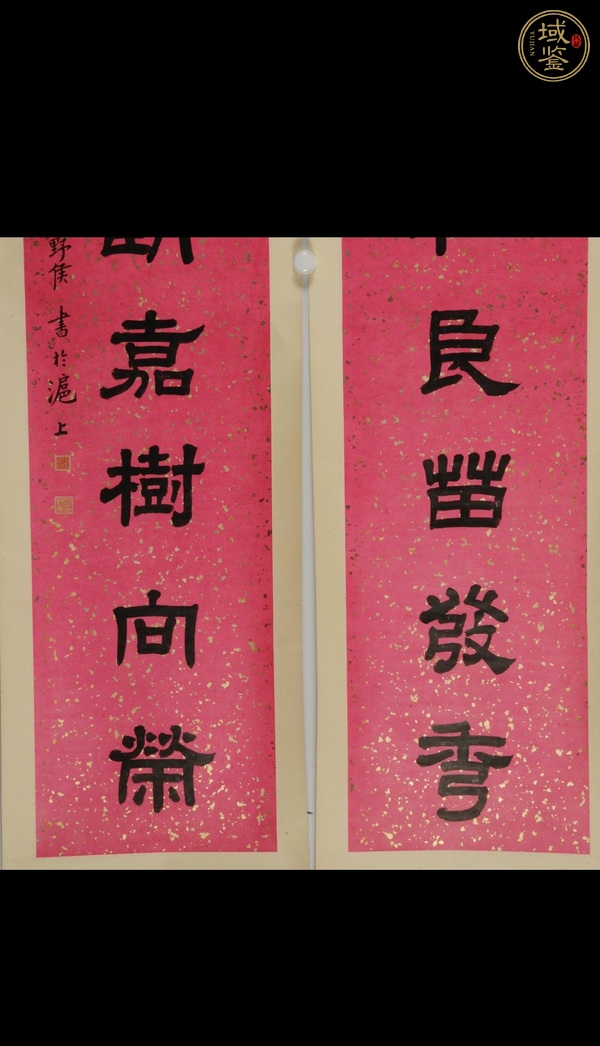 域鉴
YUJIAN
良苗發秀
嘉樹向榮
野侯 書於滬上